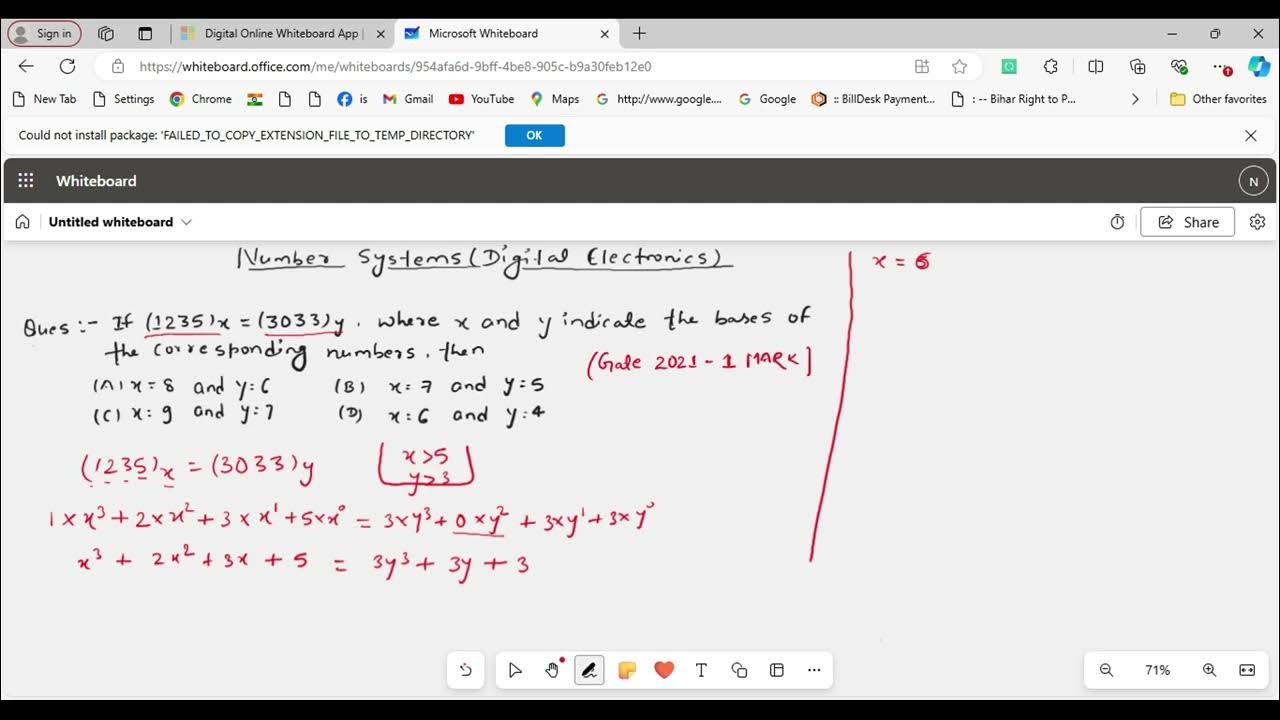 Sign in
Digital Online Whiteboard App |
Microsoft Whiteboard
https://whiteboard.office.com/me/whiteboards/954afa6d-9bff-4be8-905c-b9a30feb12e0
New Tab Settings Chrome is Gmail YouTube Maps http://www.google.... Google :: BillDesk Payment... : -- Bihar Right to P... Other favorites
Could not install package: 'FAILED_TO_COPY_EXTENSION_FILE_TO_TEMP_DIRECTORY' OK
Whiteboard N
Untitled whiteboard Share
Number Systems (Digital Electronics)
x = 6
Ques :- If (1235)x = (3033)y , where x and y indicate the bases of
the corresponding numbers, then
(Gate 2021 - 1 MARK]
(A) x = 8 and y: 6 (B) x: 7 and y: 5
(C) x: 9 and y: 7 (D) x: 6 and y: 4
(1235)x = (3033)y
x > 5
y > 3
1 × x³ + 2 × x² + 3 × x¹ + 5 × x⁰ = 3 × y³ + 0 × y² + 3 × y¹ + 3 × y⁰
x³ + 2x² + 3x + 5 = 3y³ + 3y + 3
71%